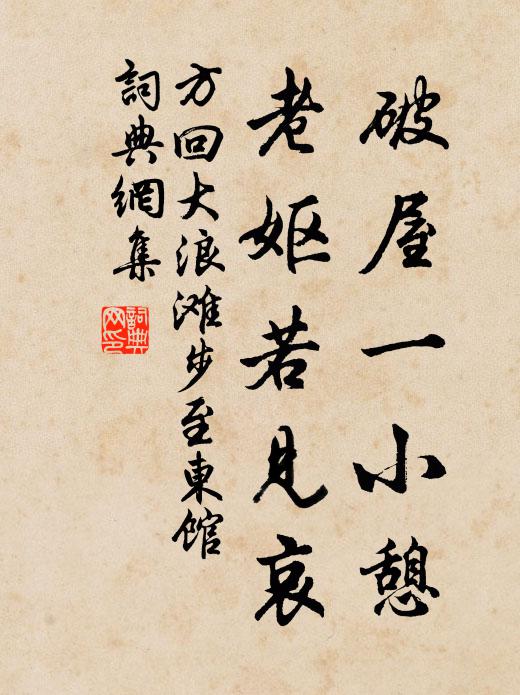 破屋一小憩
老妪若見哀
方回大浪滩步至東館
詞典網集
詞典网印